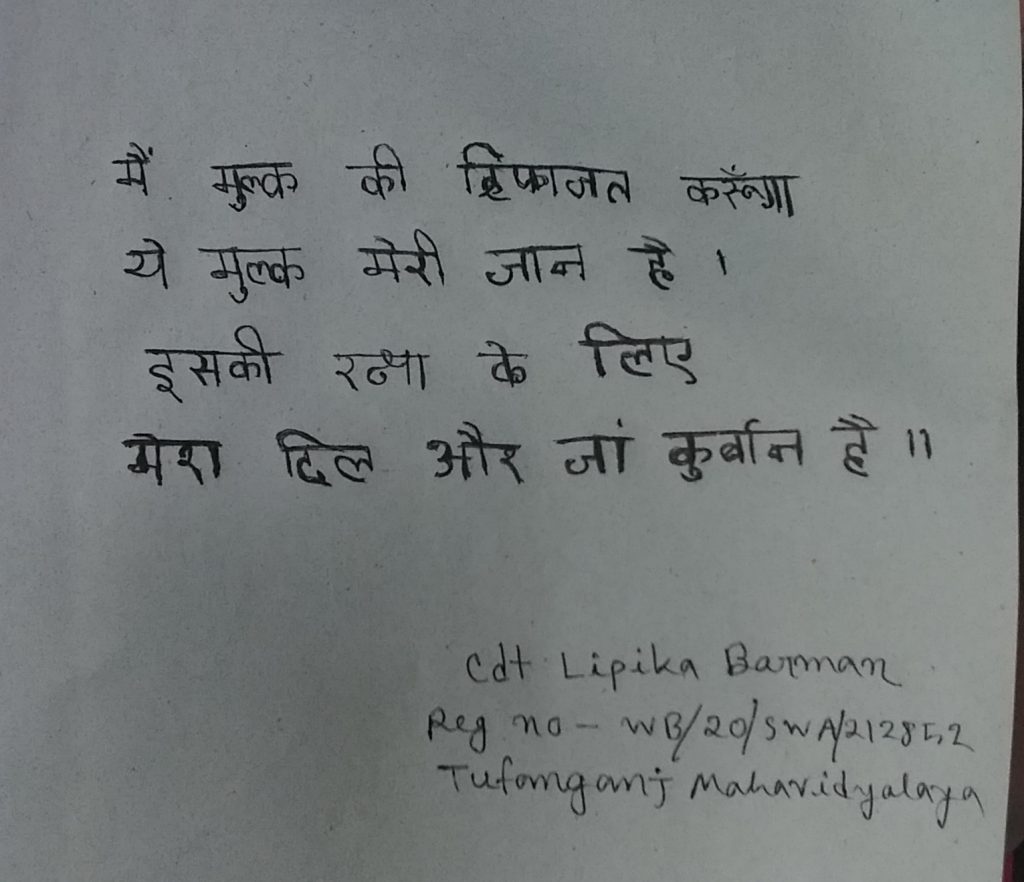 मैं मुल्क की हिफाजत करूँगा
ये मुल्क मेरी जान है ।
इसकी रक्षा के लिए
मेरा दिल और जां कुर्बान है ॥
Cdt Lipika Barman
Reg no - WB/20/SWA/212852
Tufanganj Mahavidyalaya